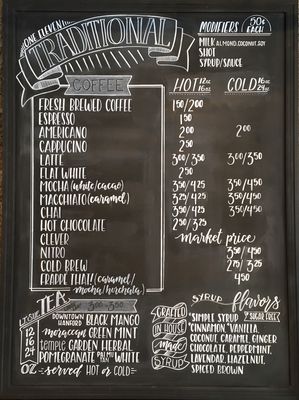 ONE ELEVEN
TRADITIONAL
MODIFIERS 50¢ EACH
MILK ALMOND, COCONUT, SOY
SHOT
SYRUP/SAUCE
COFFEE
HOT 12oz 16oz
COLD 16oz 24oz
FRESH BREWED COFFEE 1.50/2.00
ESPRESSO 1.50
AMERICANO 2.00 2.00
CAPPUCINO 2.50
LATTE 3.00/3.50 3.00/3.50
FLAT WHITE 2.50
MOCHA (white/cacao) 3.50/4.25 3.50/4.50
MACCHIATO (caramel) 3.50/4.25 3.50/4.50
CHAI 3.50/4.25 3.50/4.50
HOT CHOCOLATE 2.50/3.25
CLEVER market price
NITRO 3.50/4.50
COLD BREW 2.75/3.25
FRAPPE THAI! (caramel/ 4.50
mocha/horchata)
TEA 3.00-3.50
12 16 24 OZ
DOWNTOWN HANFORD BLACK MANGO
moroccan GREEN MINT
temple GARDEN HERBAL
POMEGRANATE PALM WHITE
served HOT or COLD
CRAFTED
IN HOUSE
made
SYRUP
SYRUP flavors
* SUGAR FREE
*SIMPLE SYRUP
*CINNAMON *VANILLA,
COCONUT, CARAMEL, GINGER
CHOCOLATE, PEPPERMINT,
LAVENDAR, HAZELNUT,
SPICED BROWN